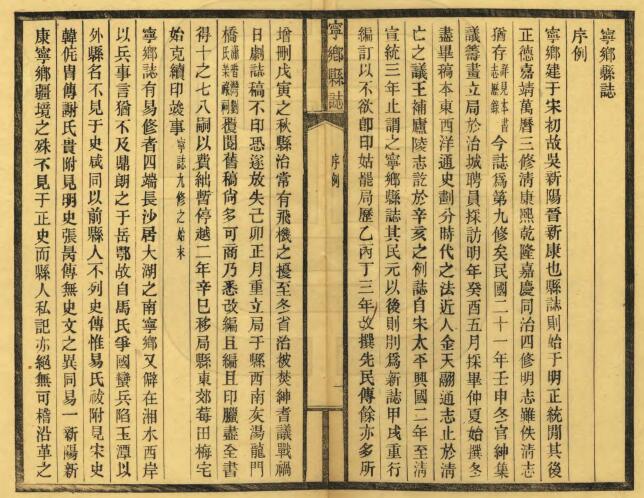 寧鄉縣誌
序例
寧鄉建于宋初故吳新陽晉新康也縣誌則始于明正統閒其後
正德嘉靖萬曆三修清康熙乾隆嘉慶同治四修明志雖佚清志
猶存詳見本書錄今誌爲第九修矣民國二十一年壬申冬官紳集
議籌畫立局於治城聘員採訪明年癸酉五月採畢仲夏始撰冬
盡畢稿本東西洋通史劃分時代之法近人金天翮通志止於清
亡之議王補廬陵志訖於辛亥之例誌自宋太平興國二年至清
宣統三年止謂之寧鄉縣誌其民元以後則別爲新誌甲戌重行
編訂以不欲卽印姑罷局歷乙丙丁三年故撰先民傳餘亦多所
寧鄉縣誌
序例
一
增刪戊寅之秋縣治常有飛機之擾至冬省治被焚紳耆議戰禍
日劇誌稿不印恐遂放失己卯正月重立局于縣西南灰湯龍門
橋覆閱舊稿尙多可商乃悉改編且編且印臘盡全書
得十之七八嗣以費絀暫停越二年辛巳移局縣東郊莓田梅宅
始克續印竣事寧誌九修之始末
寧鄉誌有易修者四端長沙居大湖之南寧鄉又僻在湘水西岸
以兵事言猶不及鼎朗之于岳鄂故自馬氏爭國蠻兵陷玉潭以
外縣名不見于史咸同以前縣人不列史傳惟易氏祓附見宋史
韓侂冑傳謝氏貴附見明史張昺傳無史文之異同易一新陽新
康寧鄉疆境之殊不見于正史而縣人私記亦絕無可稽沿革之